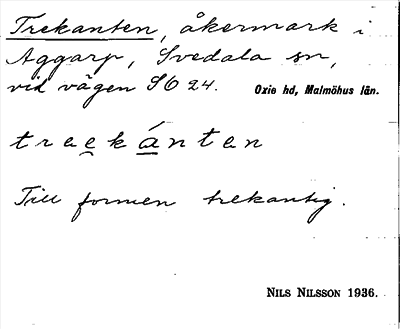 Trekanten, åkermark i
Aggarp, Svedala sn,
vid vägen SO 24. Oxie hd, Malmöhus län.
traekánten
Till formen trekantig.
NILS NILSSON 1936.